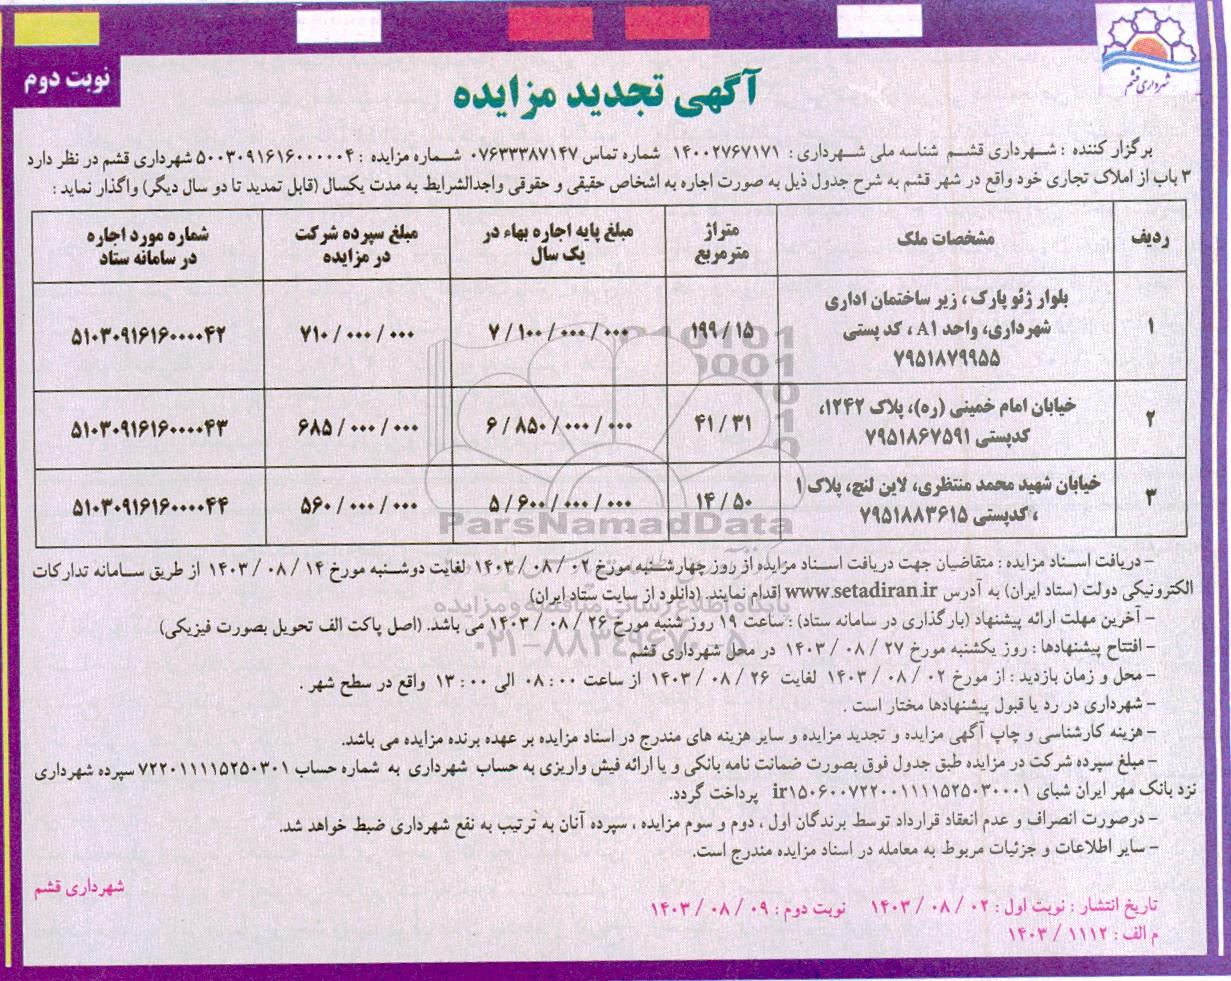 شهرداری قشم
نوبت دوم
آگهی تجدید مزایده
برگزار کننده : شهرداری قشم شناسه ملی شهرداری : ۱۴۰۰۲۷۶۷۱۷۱ شماره تماس ۰۷۶۳۳۳۸۷۱۴۷ شماره مزایده : ۵۰۰۳۰۹۱۶۱۶۰۰۰۰۰۴ شهرداری قشم در نظر دارد
۳ باب از املاک تجاری خود واقع در شهر قشم به شرح جدول ذیل به صورت اجاره به اشخاص حقیقی و حقوقی واجدالشرایط به مدت یکسال (قابل تمدید تا دو سال دیگر) واگذار نماید :
ردیف | مشخصات ملک | متراژ مترمربع | مبلغ پایه اجاره بهاء در یک سال | مبلغ سپرده شرکت در مزایده | شماره مورد اجاره در سامانه ستاد
۱ | بلوار ژئو پارک ، زیر ساختمان اداری شهرداری، واحد A۱ ، کد پستی ۷۹۵۱۸۷۹۹۵۵ | ۱۹۹/۱۵ | ۷/۱۰۰/۰۰۰/۰۰۰ | ۷۱۰/۰۰۰/۰۰۰ | ۵۱۰۳۰۹۱۶۱۶۰۰۰۰۴۲
۲ | خیابان امام خمینی (ره)، پلاک ۱۲۴۲، کدپستی ۷۹۵۱۸۶۷۵۹۱ | ۴۱/۳۱ | ۶/۸۵۰/۰۰۰/۰۰۰ | ۶۸۵/۰۰۰/۰۰۰ | ۵۱۰۳۰۹۱۶۱۶۰۰۰۰۴۳
۳ | خیابان شهید محمد منتظری، لاین لنج، پلاک ۱ ، کدپستی ۷۹۵۱۸۸۳۶۱۵ | ۱۴/۵۰ | ۵/۶۰۰/۰۰۰/۰۰۰ | ۵۶۰/۰۰۰/۰۰۰ | ۵۱۰۳۰۹۱۶۱۶۰۰۰۰۴۴
ParsNamadData
پایگاه اطلاع رسانی مناقصه و مزایده
۰۲۱-۸۸۳۴۹۶۷۰-۵
– دریافت اسناد مزایده : متقاضیان جهت دریافت اسناد مزایده از روز چهارشنبه مورخ ۰۲ / ۰۸ / ۱۴۰۳ لغایت دوشنبه مورخ ۱۴ / ۰۸ / ۱۴۰۳ از طریق سامانه تدارکات
الکترونیکی دولت (ستاد ایران) به آدرس www.setadiran.ir اقدام نمایند. (دانلود از سایت ستاد ایران)
– آخرین مهلت ارائه پیشنهاد (بارگذاری در سامانه ستاد) : ساعت ۱۹ روز شنبه مورخ ۲۶ / ۰۸ / ۱۴۰۳ می باشد. (اصل پاکت الف تحویل بصورت فیزیکی)
– افتتاح پیشنهادها : روز یکشنبه مورخ ۲۷ / ۰۸ / ۱۴۰۳ در محل شهرداری قشم
– محل و زمان بازدید : از مورخ ۰۲ / ۰۸ / ۱۴۰۳ لغایت ۲۶ / ۰۸ / ۱۴۰۳ از ساعت ۰۸:۰۰ الی ۱۳:۰۰ واقع در سطح شهر .
– شهرداری در رد یا قبول پیشنهادها مختار است .
– هزینه کارشناسی و چاپ آگهی مزایده و تجدید مزایده و سایر هزینه های مندرج در اسناد مزایده بر عهده برنده مزایده می باشد.
– مبلغ سپرده شرکت در مزایده طبق جدول فوق بصورت ضمانت نامه بانکی و یا ارائه فیش واریزی به حساب شهرداری به شماره حساب ۷۲۲۰۱۱۱۱۵۲۵۰۳۰۱ سپرده شهرداری
نزد بانک مهر ایران شبای ir۱۵۰۶۰۰۷۲۲۰۰۱۱۱۱۵۲۵۰۳۰۰۰۱ پرداخت گردد.
– درصورت انصراف و عدم انعقاد قرارداد توسط برندگان اول ، دوم و سوم مزایده ، سپرده آنان به ترتیب به نفع شهرداری ضبط خواهد شد.
– سایر اطلاعات و جزئیات مربوط به معامله در اسناد مزایده مندرج است.
شهرداری قشم
تاریخ انتشار : نوبت اول : ۰۲ / ۰۸ / ۱۴۰۳ نوبت دوم : ۰۹ / ۰۸ / ۱۴۰۳
م الف : ۱۱۱۲ / ۱۴۰۳